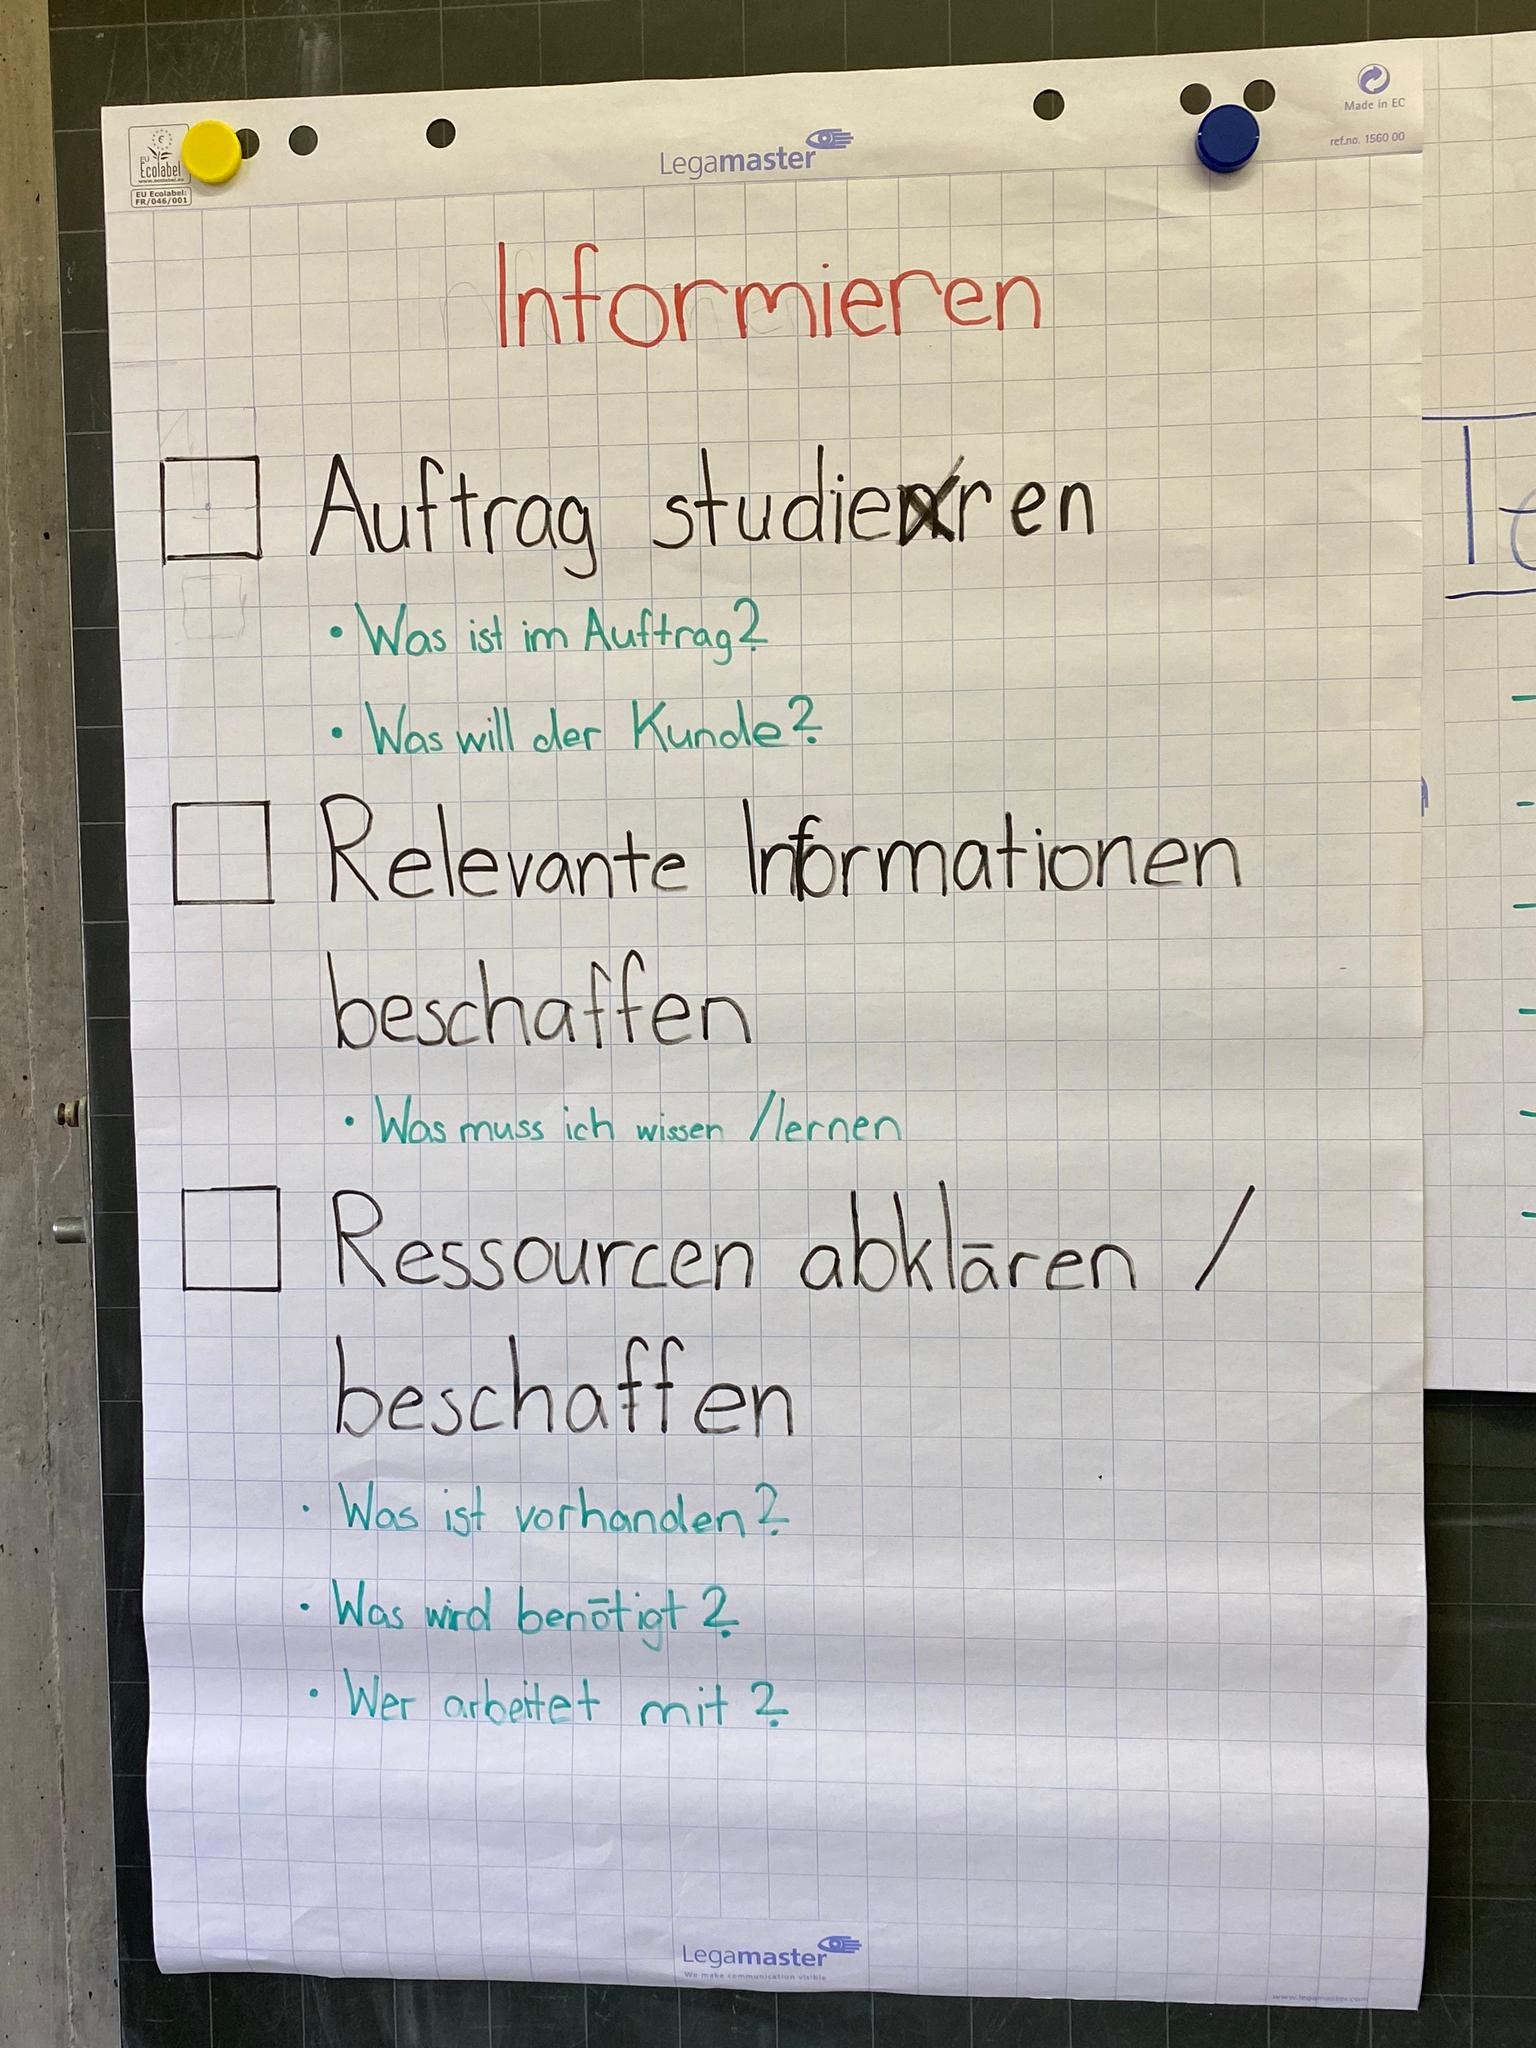 EU
Ecolabel
www.ecolabel.eu
EU Ecolabel:
FR/046/001
Legamaster
Made in EC
ref.no. 1560 00
Informieren
Auftrag studieren
• Was ist im Auftrag?
• Was will der Kunde?
Relevante Informationen
beschaffen
• Was muss ich wissen / lernen
Ressourcen abklären /
beschaffen
• Was ist vorhanden?
• Was wird benötigt?
• Wer arbeitet mit?
Legamaster
We make communication visible
www.legamaster.com